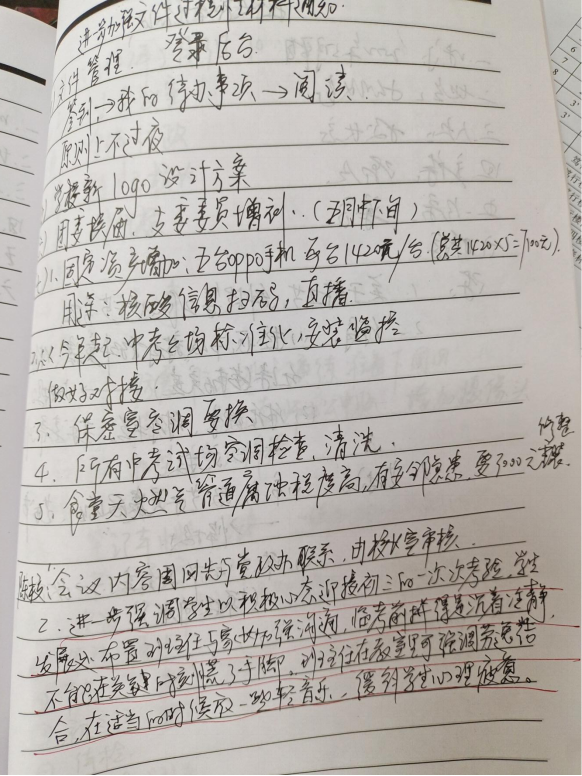 进一步加强文件过程性材料通知.
文件管理 登录后台
签到→我的待办事项→阅读.
原则上不过夜
新logo设计方案
团支换届、支委委员增补..(五月中下旬)
1.固定资产增加:五台oppo手机 每台1420元/台.(总共1420×5=7100元).
用途:核酸信息扫码,直播.
2.从今年起 中考考场标准化,安装监控
做好对接.
3、保密室空调要换
4.所有中考试场空调检查,清洗.
5、食堂天然气管道腐蚀程度高,有安全隐患,要7000元
会议内容周四先与党政办联系,由校长室审核.
2.进一步强调学生以积极心态迎接初三的一次次考验,学生
发展处布置班主任与家长加强沟通,临考前样得是沉着冷静,
不能在关键时刻慌了手脚,班主任在教室里可强调劳逸结
合,在适当的时候放一些轻音乐,缓解学生心理疲惫。